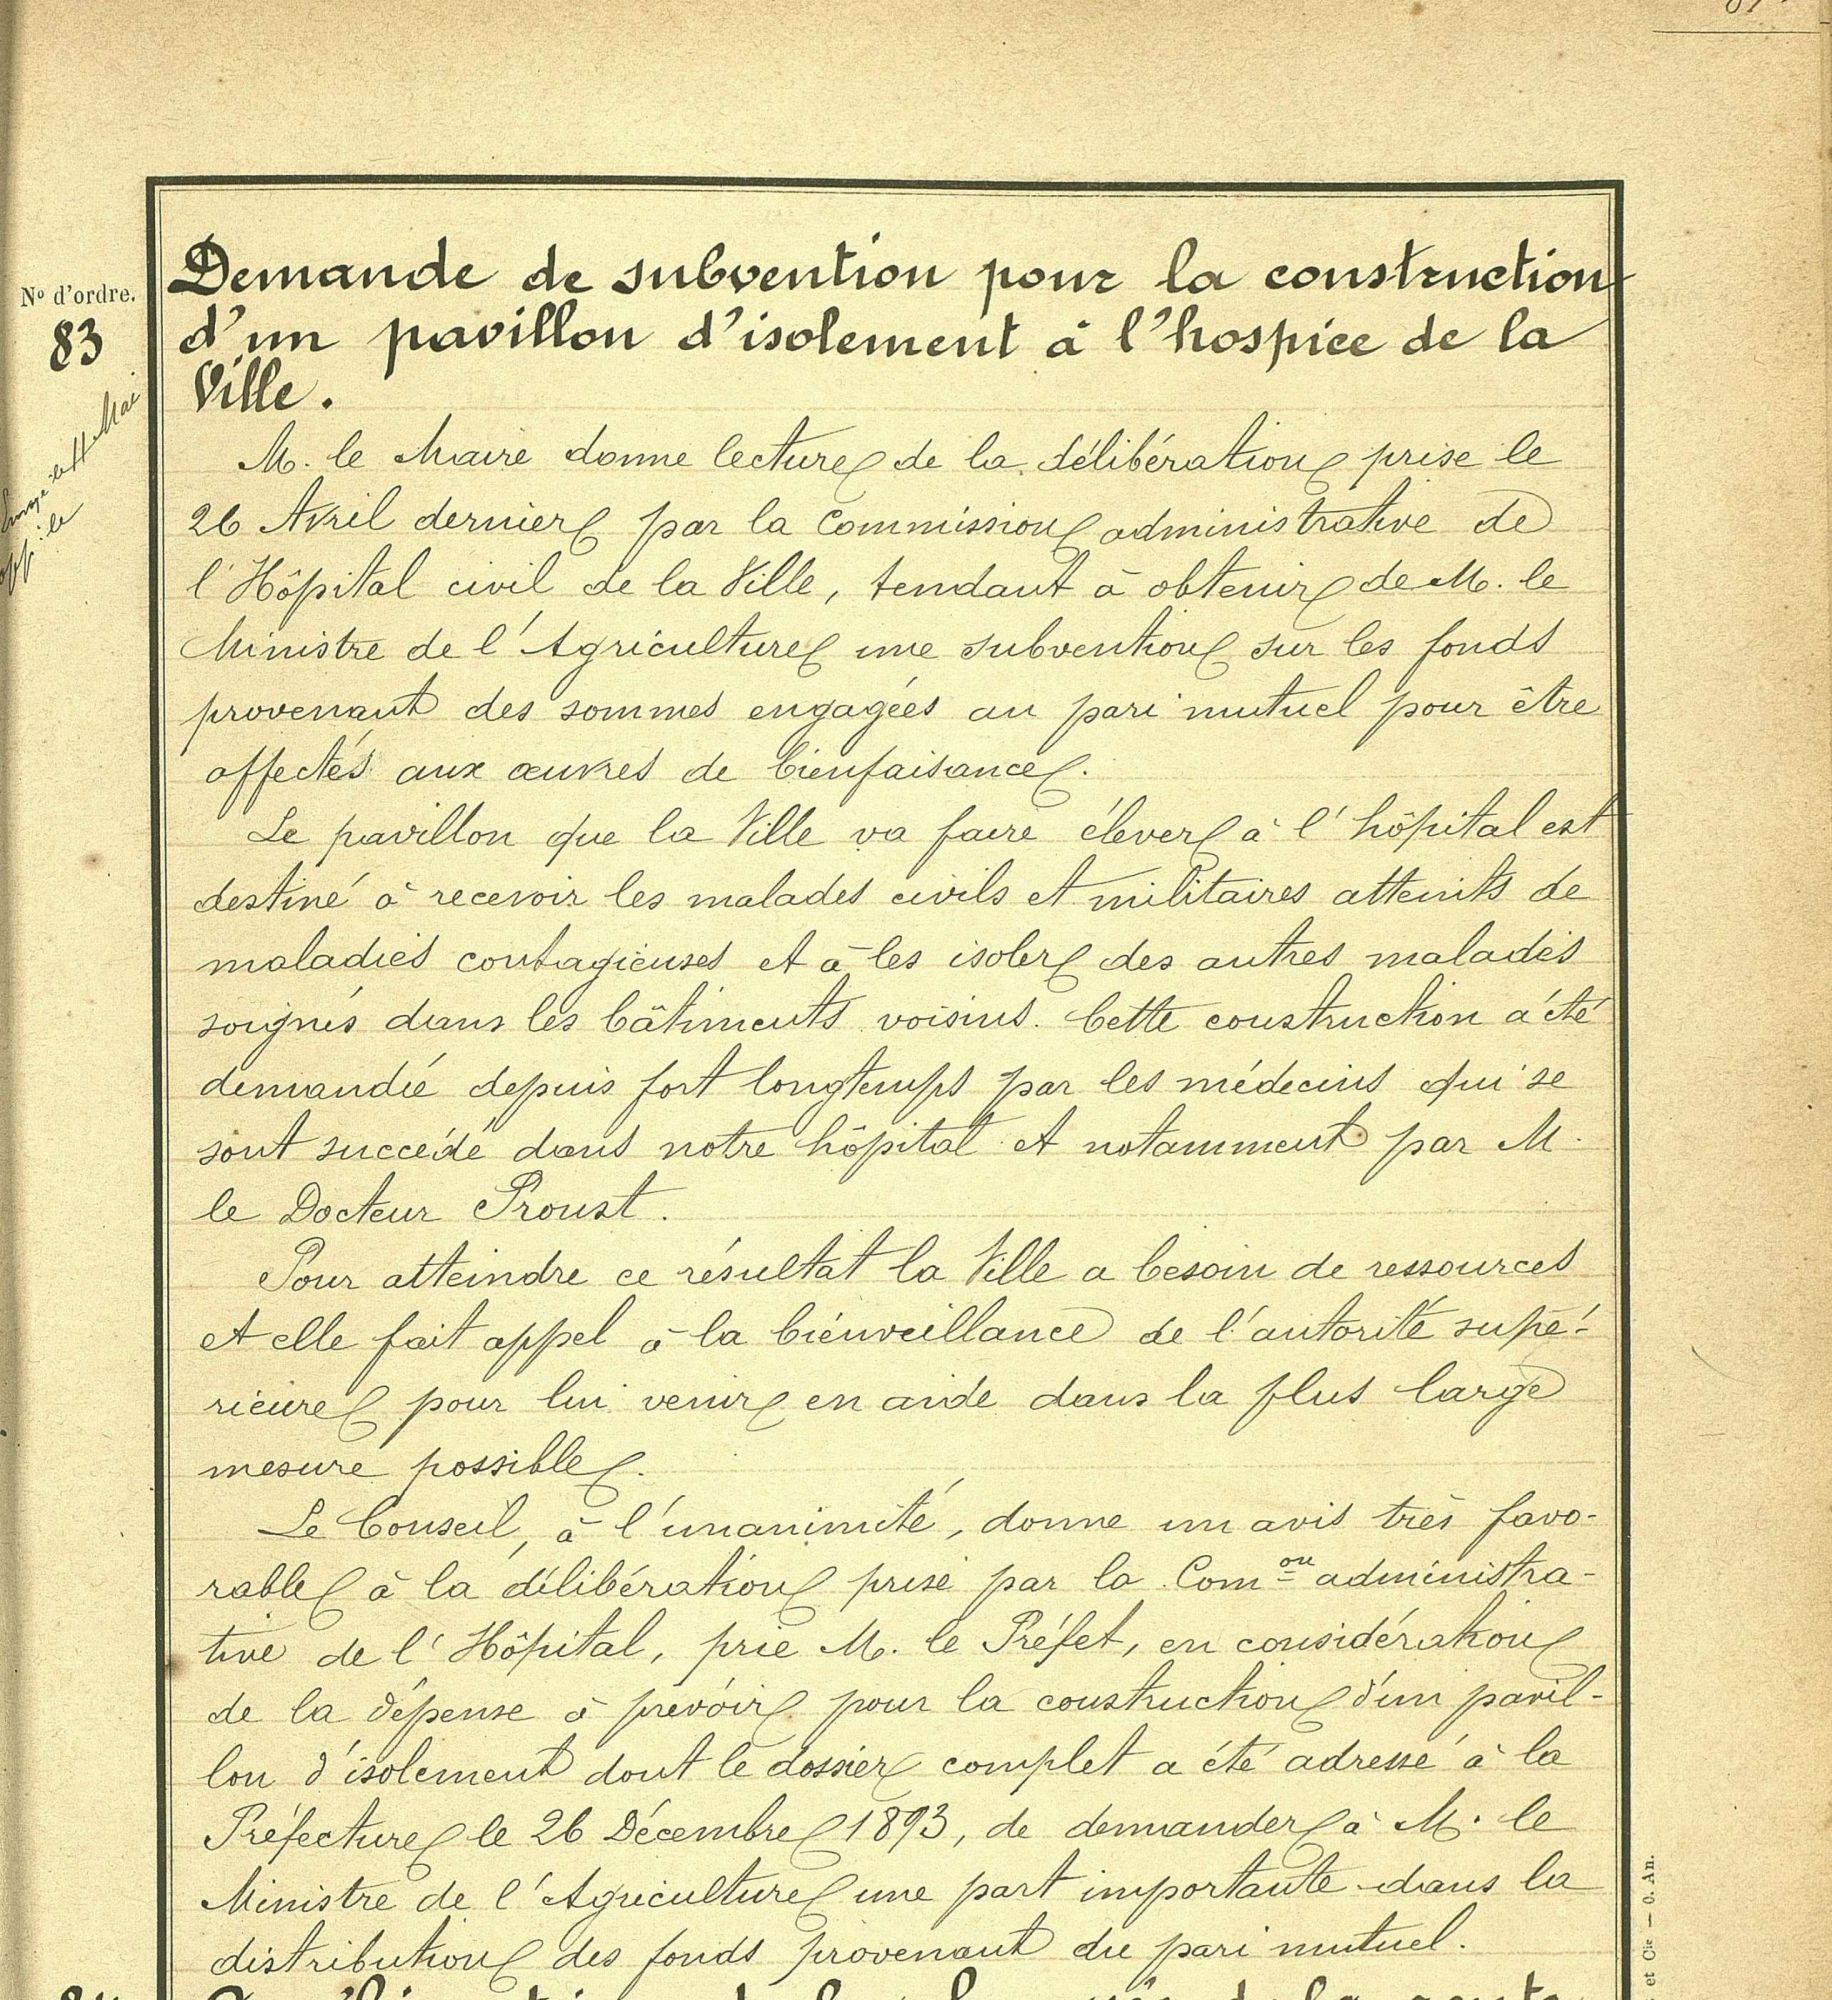 Nº d'ordre.
83
Demande de subvention pour la construction
d'un pavillon d'isolement à l'hospice de la
Ville.
M. le Maire donne lecture de la délibération prise le
26 Avril dernier par la Commission administrative de
l'Hôpital civil de la Ville, tendant à obtenir de M. le
Ministre de l'Agriculture une subvention sur les fonds
provenant des sommes engagées au pari mutuel pour être
affectés aux œuvres de bienfaisance.
Le pavillon que la Ville va faire élever à l'hôpital est
destiné à recevoir les malades civils et militaires atteints de
maladies contagieuses et à les isoler des autres malades
soignés dans les bâtiments voisins. Cette construction a été
demandée depuis fort longtemps par les médecins qui se
sont succédé dans notre hôpital et notamment par M.
le Docteur Proust.
Pour atteindre ce résultat la Ville a besoin de ressources
et elle fait appel à la bienveillance de l'autorité supé-
rieure pour lui venir en aide dans la plus large
mesure possible.
Le Conseil, à l'unanimité, donne un avis très favo-
rable à la délibération prise par la Com.on administra-
tive de l'Hôpital, prie M. le Préfet, en considération
de la dépense à prévoir pour la construction d'un pavil-
lon d'isolement dont le dossier complet a été adressé à la
Préfecture le 26 Décembre 1893, de demander à M. le
Ministre de l'Agriculture une part importante dans la
distribution des fonds provenant du pari mutuel.
et Cie — O. An.